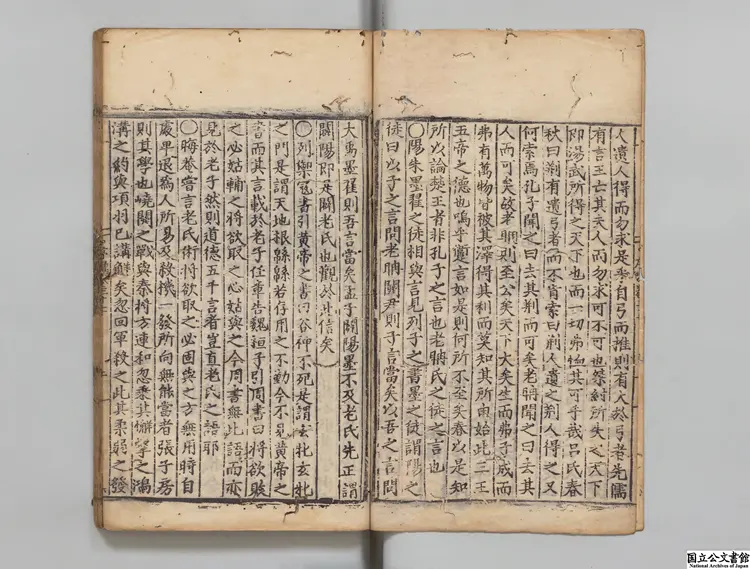 人遺人得而勿求是乎自弓而推則有大於弓者先儒
有言王亡其夫人而勿求可不可也桀紂所失之天下
即湯武所得之天下也而一切弗恤其可乎哉呂氏春
秋曰荊有遺弓者而不肯索曰荊人遺之荊人得之又
何索焉孔子聞之曰去其荊而可矣老聃聞之曰去其
人而可矣故老聃則至公矣天下大矣生而弗子成而
弗有萬物皆被其澤得其利而莫知其所由始此三王
五帝之德也嗚乎言如是則何所不至矣以是知
所以論楚王者非孔子之言也老聃氏之徒之言也
○陽朱墨翟之徒相與言見列子之書墨之徒謂陽之
徒曰以子之言問老聃關尹則子言當矣以吾之言問
大禹墨翟則吾言當矣孟子闢陽墨不及老氏先正謂
闢陽即是闢老氏也觀於此信矣
○列禦冠書引黃帝之書曰谷神不死是謂玄牝玄牝
之門是謂天地根綿綿若存用之不動今不見黃帝之
書而其言載於老子任章告魏桓子引周書曰將欲敗
之必姑輔之將欲取之必姑與之今周書無此語而亦
見於老子然則道德五千言者豈直老氏之語耶
○晦菴嘗言老氏術將欲取之必固與之方無用時自
處卑退為人所易及發機一發所向無能當者張子房
則其學也嶢關之戰與秦將方連和忽乘其懈擊之鴻
溝之約與項羽已講解矣忽回軍殺之此其柔弱之發
国立公文書館
National Archives of Japan